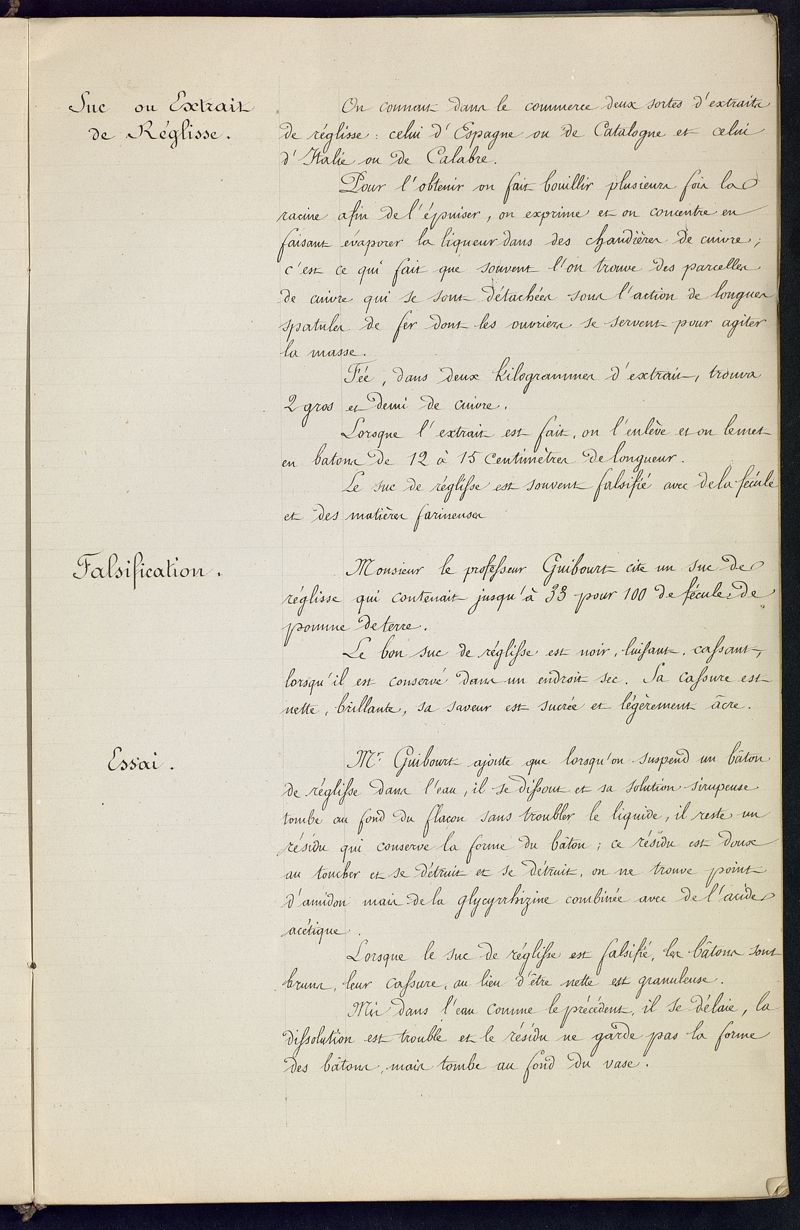 Suc ou Extrait
de Réglisse.
On connait dans le commerce deux sortes d'extraits
de réglisse : celui d'Espagne ou de Catalogne et celui
d'Italie ou de Calabre.
Pour l'obtenir on fait bouillir plusieurs fois la
racine afin de l'épuiser, on exprime et on concentre en
faisant évaporer la liqueur dans des chaudières de cuivre ;
c'est ce qui fait que souvent l'on trouve des parcelles
de cuivre qui se sont détachées sous l'action de longues
spatules de fer dont les ouvriers se servent pour agiter
la masse.
Fée, dans deux kilogrammes d'extrait, trouva
2 gros et demi de cuivre.
Lorsque l'extrait est fait, on l'enlève et on le met
en batons de 12 à 15 centimètres de longueur.
Le suc de réglisse est souvent falsifié avec de la fécule
et des matières farineuses
Falsification.
Monsieur le professeur Guibourt cite un suc de
réglisse qui contenait jusqu'à 33 pour 100 de fécule de
pomme de terre.
Le bon suc de réglisse est noir, luisant, cassant,
lorsqu'il est conservé dans un endroit sec. Sa cassure est
nette, brillante, sa saveur est sucrée et légèrement âcre.
Essai.
Mr Guibourt ajoute que lorsqu'on suspend un bâton
de réglisse dans l'eau, il se dissout et sa solution sirupeuse
tombe au fond du flacon sans troubler le liquide, il reste un
résidu qui conserve la forme du bâton ; ce résidu est doux
au toucher et se détruit et se détruit, on ne trouve point
d'amidon mais de la glycyrrhizine combinée avec de l'acide
acétique.
Lorsque le suc de réglisse est falsifié, les bâtons sont
bruns, leur cassure, au lieu d'être nette est granuleuse.
Mis dans l'eau comme le précédent, il se délaie, la
dissolution est trouble et le résidu ne garde pas la forme
des bâtons, mais tombe au fond du vase.